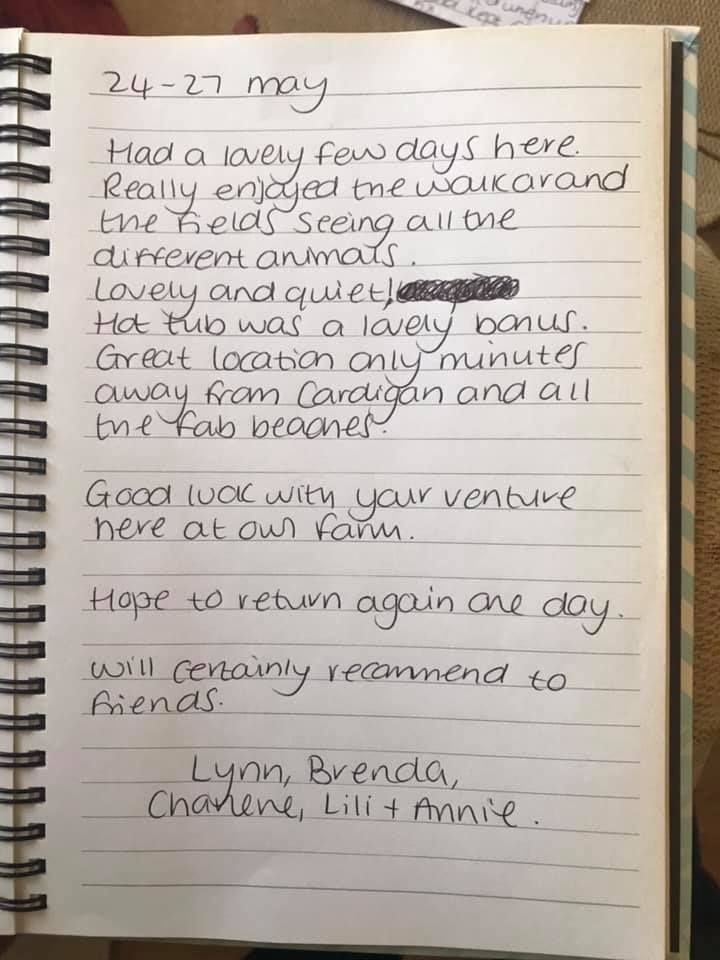 24-27 may
Had a lovely few days here.
Really enjoyed the walk around
the fields seeing all the
different animals.
Lovely and quiet!
Hot tub was a lovely bonus.
Great location only minutes
away from Cardigan and all
the fab beaches.
Good luck with your venture
here at owl farm.
Hope to return again one day.
will certainly recommend to
friends.
Lynn, Brenda,
Charlene, Lili + Annie.